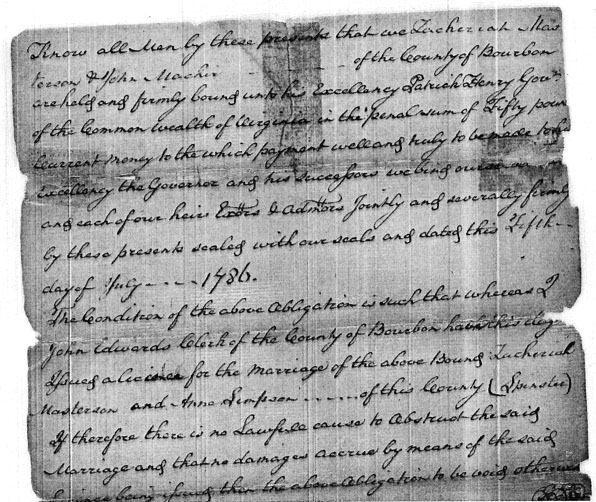 Know all Men by these presents that we Zacheriah Mas
terson & John Machir - - of the County of Bourbon
are held and firmly bound unto his Excellency Patrick Henry Govr.
of the Common wealth of Virginia in the penal sum of Fifty poun
Current money to the which payment well and truly to be made to his
Excellency the Governor and his successors we bind
and each of our heirs Extrs & Admtrs Jointly and severally firmly
by these presents sealed with our seals and dated this Fifth -
day of July - - - - 1786.
The Condition of the above Obligation is such that whereas I
John Edwards Clerk of the County of Bourbon hath this day
Issued a licence for the Marriage of the above Bound Zacheriah
Masterson and Anne Simpson - - - - - of this County (Spinster)
If therefore there is no Lawfull cause to Obstruct the said
Marriage and that no damages accrue by means of the said
Licence being issued then the above Obligation to be void otherwise